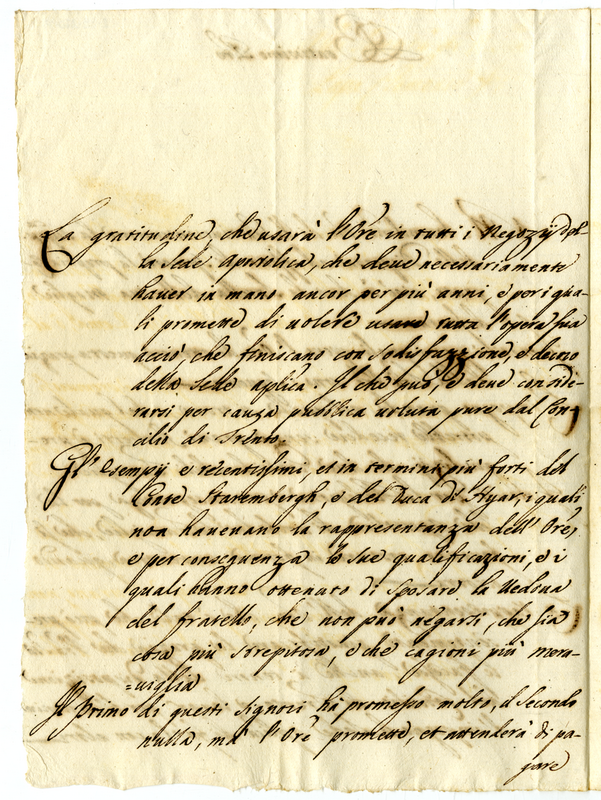 La gratitudine, che usarà l'Ore in tutti i Negozij del
la Sede Apostolica, che deve necessariamente
haver in mano ancor per più anni, e per i qua-
li promette di volere usare tutta l'opera sua
acciò, che finiscano con sodisfazzione, e decoro
della Sede aplica. Il che può, e deve conside-
rarsi per causa pubblica voluta pure dal Con-
cilio di Trento.
Gl' esempij e recentissimi, et in termini più forti del
Conte Starembergh, e del Duca di Hyar, i quali
non havevano la rappresentanza dell' Ore,
e per conseguenza le sue qualificazioni, e i
quali hanno ottenuto di sposare la Vedova
del fratello, che non può negarsi, che sia
cosa più strepitosa, e che cagioni più mera-
=viglia
Il Primo di questi signori hà promesso molto, il secondo
nulla, mà l'Ore promette, et attenderà di pa-
gare